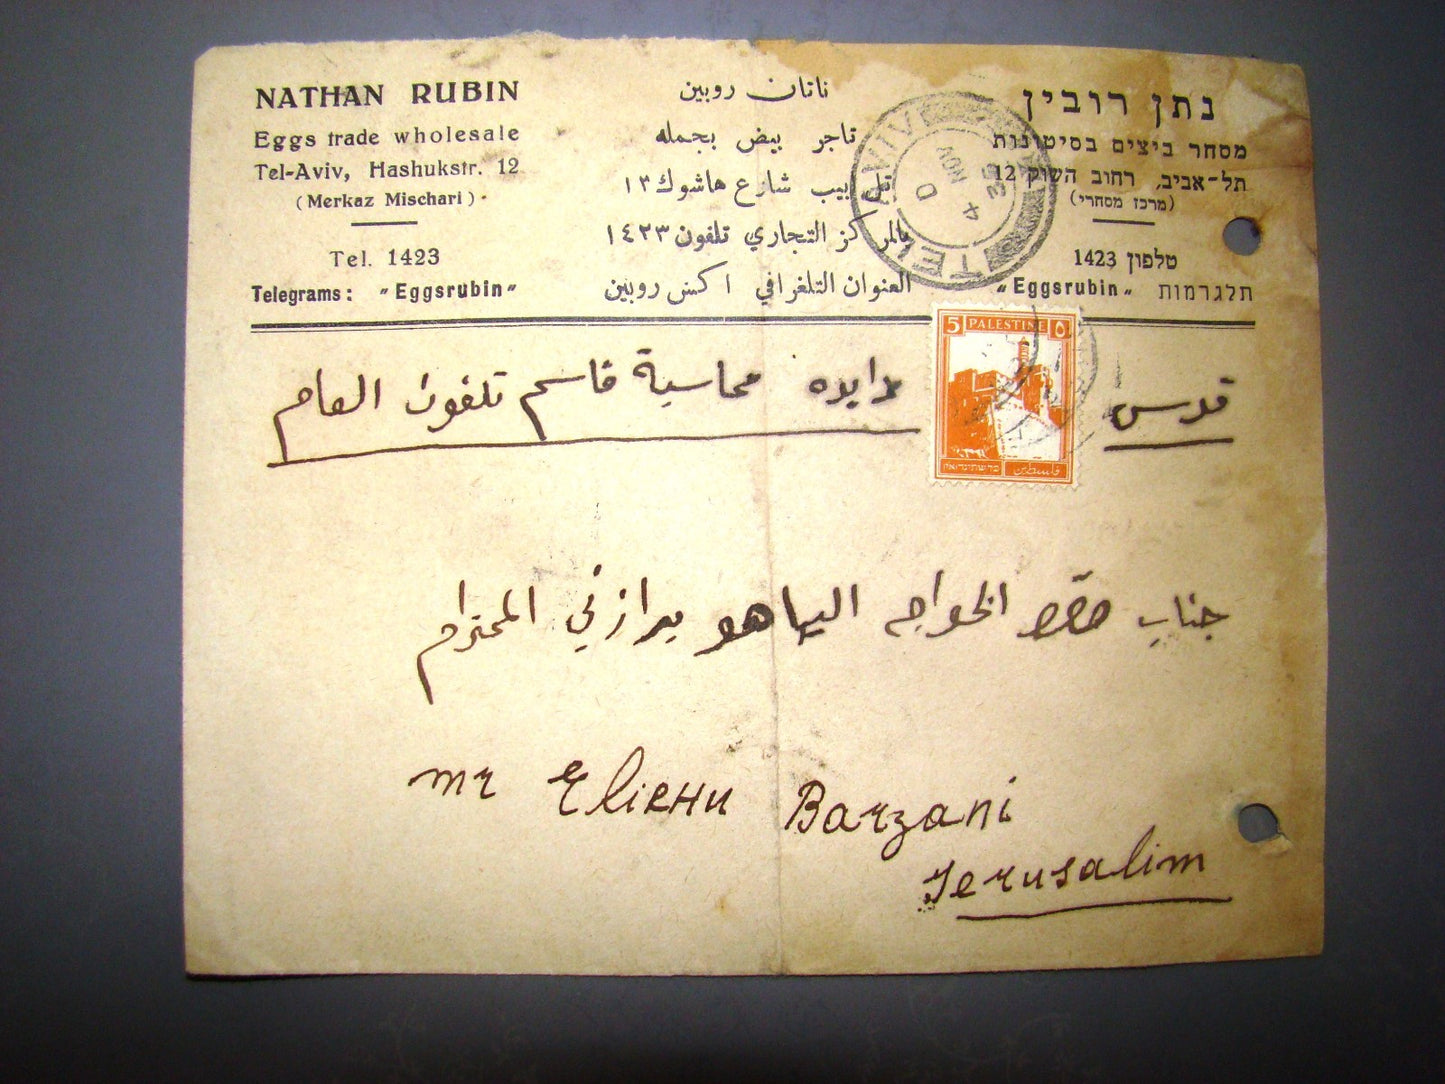 NATHAN RUBIN
Eggs trade wholesale
Tel-Aviv, Hashukstr. 12
(Merkaz Mischari)
Tel. 1423
Telegrams: "Eggsrubin"
ناتان روبين
تاجر بيض بجمله
تل ابيب شارع هاشوك ١٢
بالمركز التجاري تلفون ١٤٢٣
العنوان التلغرافي اكس روبين
נתן רובין
מסחר ביצים בסיטונות
תל-אביב, רחוב השוק 12
(מרכז מסחרי)
טלפון 1423
תלגרמות "Eggsrubin"
TEL AVIV
D
4 NOV 35
5 PALESTINE ٥
فلسطين
פלשתינה א״י
قدس
محاسبة قاسم تلفون العام
جناب الخواجه الياهو برازني المحترام
mr Elirhu Barzani
Jerusalim